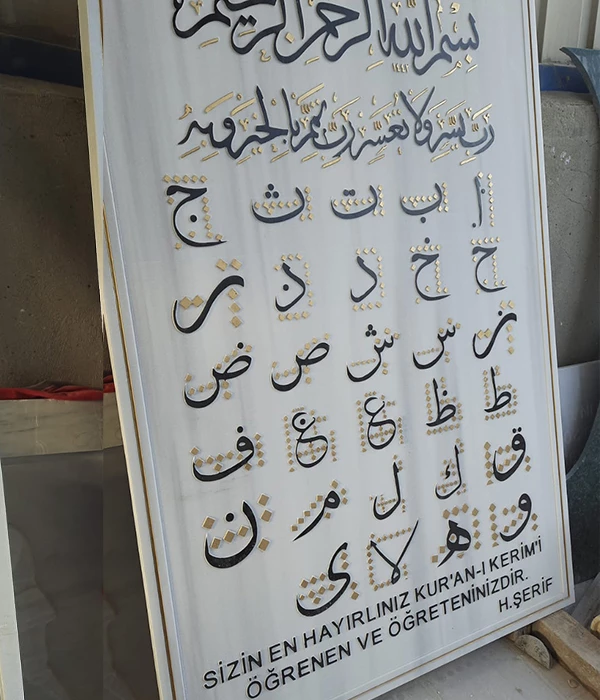 بسم الله الرحمن الرحيم
رب يسر ولا تعسر رب تمم بالخير وبه
ا ب ت ث ج
ح خ د ذ ر
ز س ش ص ض
ط ظ ع غ ف
ق ك ل م ن
و ه لا ى
SİZİN EN HAYIRLINIZ KUR'AN-I KERİM'İ
ÖĞRENEN VE ÖĞRETENİNİZDİR.
H.ŞERİF